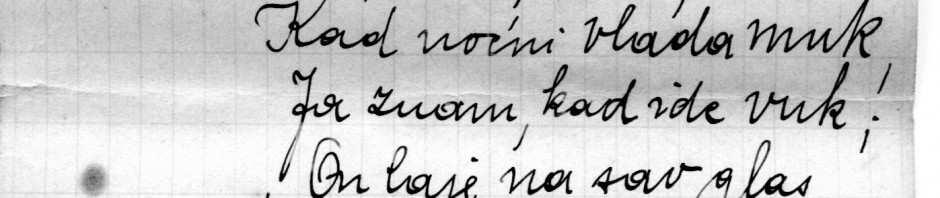 Kad noćni vlada muk,
Ja znam, kad ide vuk!
On laje na sav glas